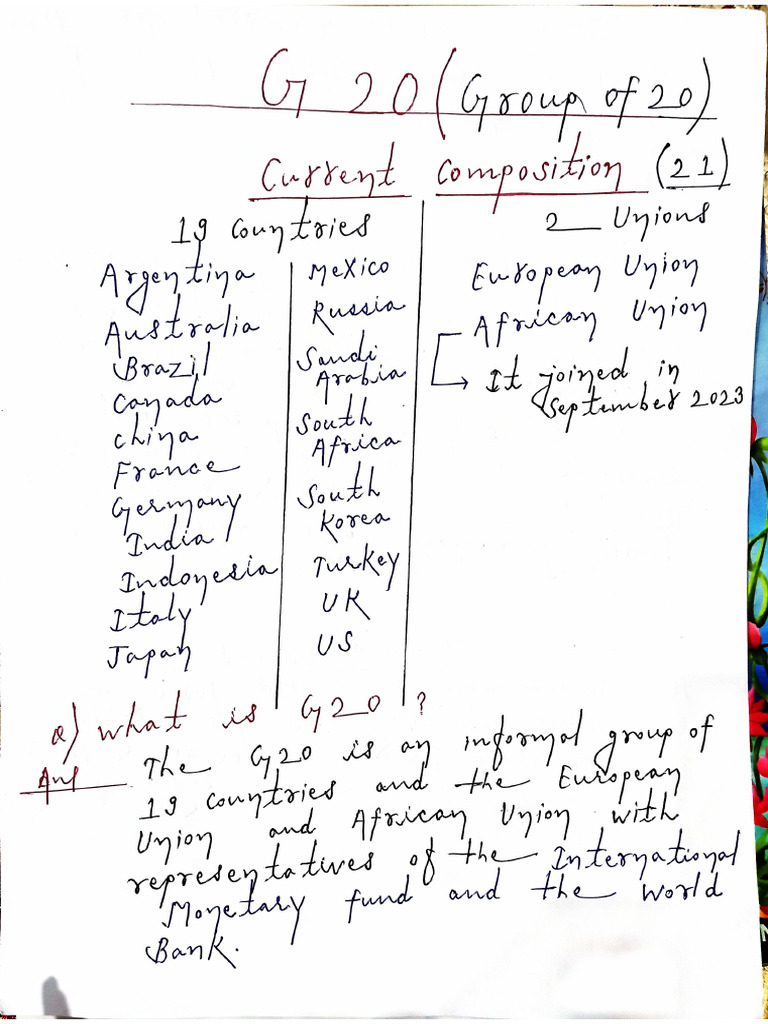 G 20 (Group of 20)
Current composition (21)
19 countries
Argentina
Australia
Brazil
Canada
China
France
Germany
India
Indonesia
Italy
Japan
Mexico
Russia
Saudi
Arabia
South
Africa
South
Korea
Turkey
UK
US
2 Unions
European Union
African Union
It joined in
September 2023
Q) What is G20 ?
Ans The G20 is an informal group of
19 countries and the European
Union and African Union with
representatives of the International
Monetary fund and the World
Bank.